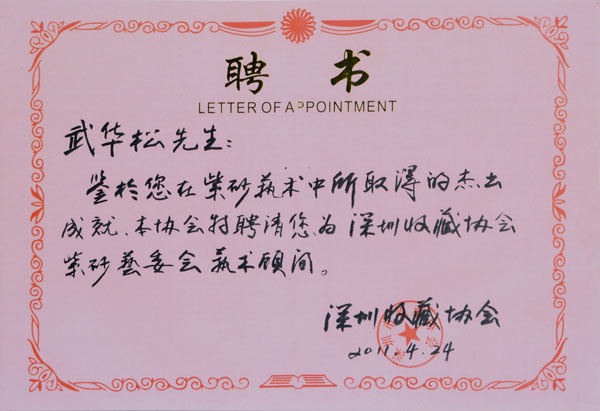 聘 书
LETTER OF APPOINTMENT
武华松先生:
鉴於您在紫砂艺术中所取得的杰出
成就、本协会特聘请您为深圳收藏协会
紫砂藝委会艺术顾问。
深圳收藏协会
2011.4.24